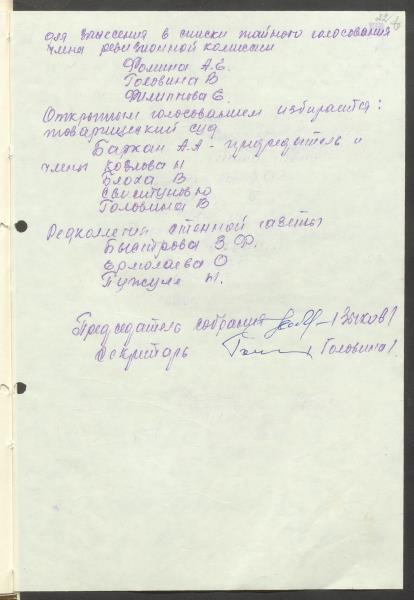 для внесения в списки тайного голосования
члена ревизионной комиссии
Фомина А.Е.
Головина В
Филиппова Е.
Открытым голосованием избирается:
товарищеский суд
Баркан А.А - председатель и
члены Козлова Н
Блоха В
Головина В
Редколлегия стенной газеты
Быстрова З.Ф.
Ермолаева О
Пужуле Н.
Председатель собрания /Зыков/
Секретарь /Головина/